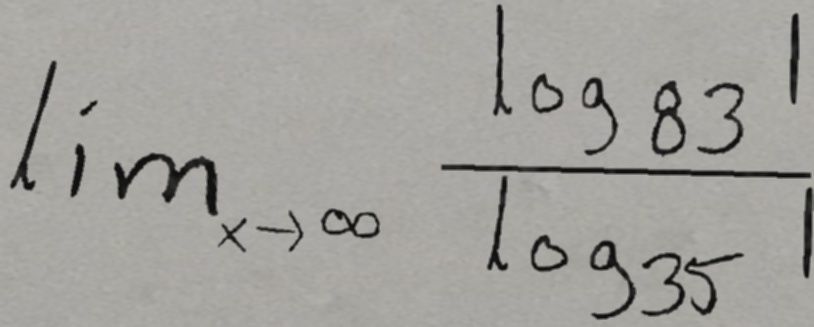 lim_{x→∞} \frac{log_{83} 1}{log_{35} 1}